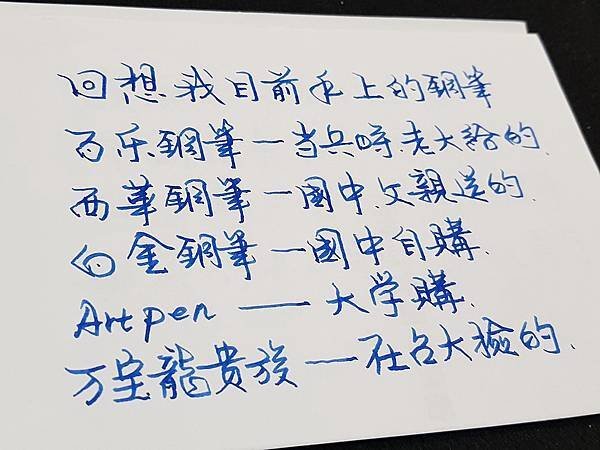 回想我目前手上的鋼筆
百乐鋼筆一当兵時老大給的.
西華鋼筆一國中父親送的.
白金鋼筆一國中自購.
Artpen — 大学購.
万宝龍貴族一在台大撿的.